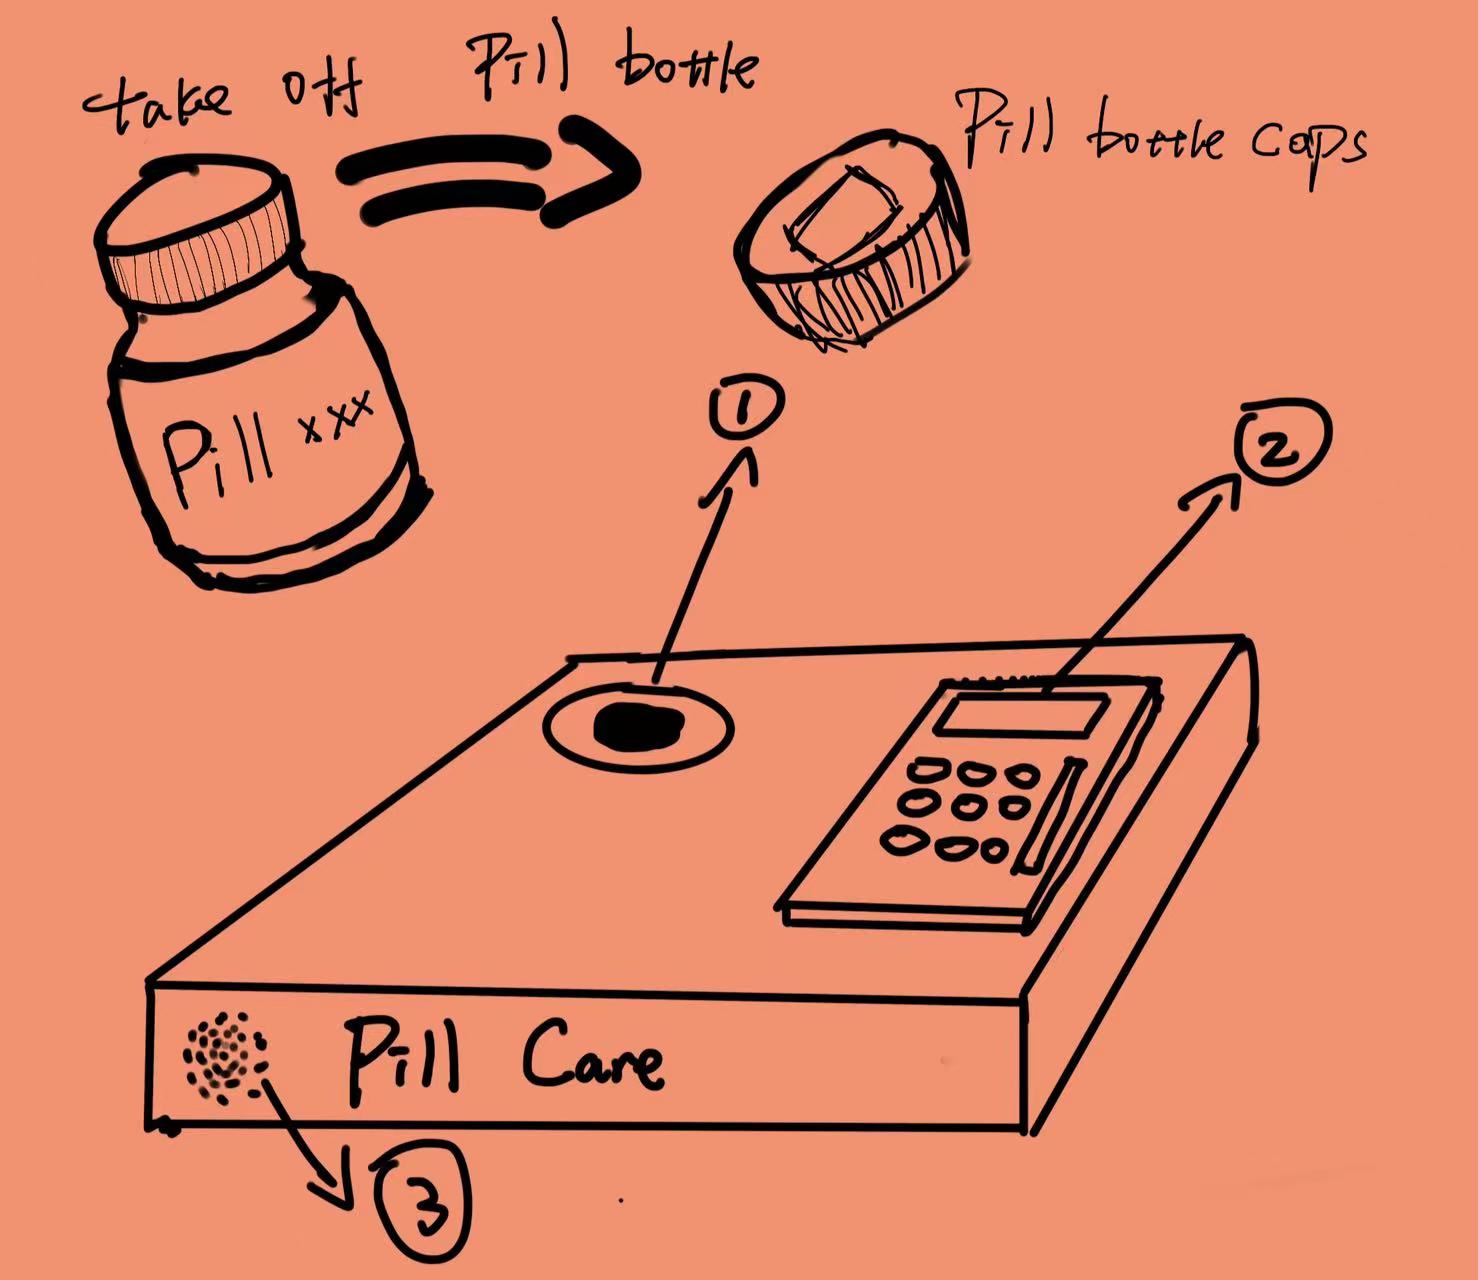 take off Pill bottle
Pill bottle caps
Pill xxx
1
2
Pill Care
3